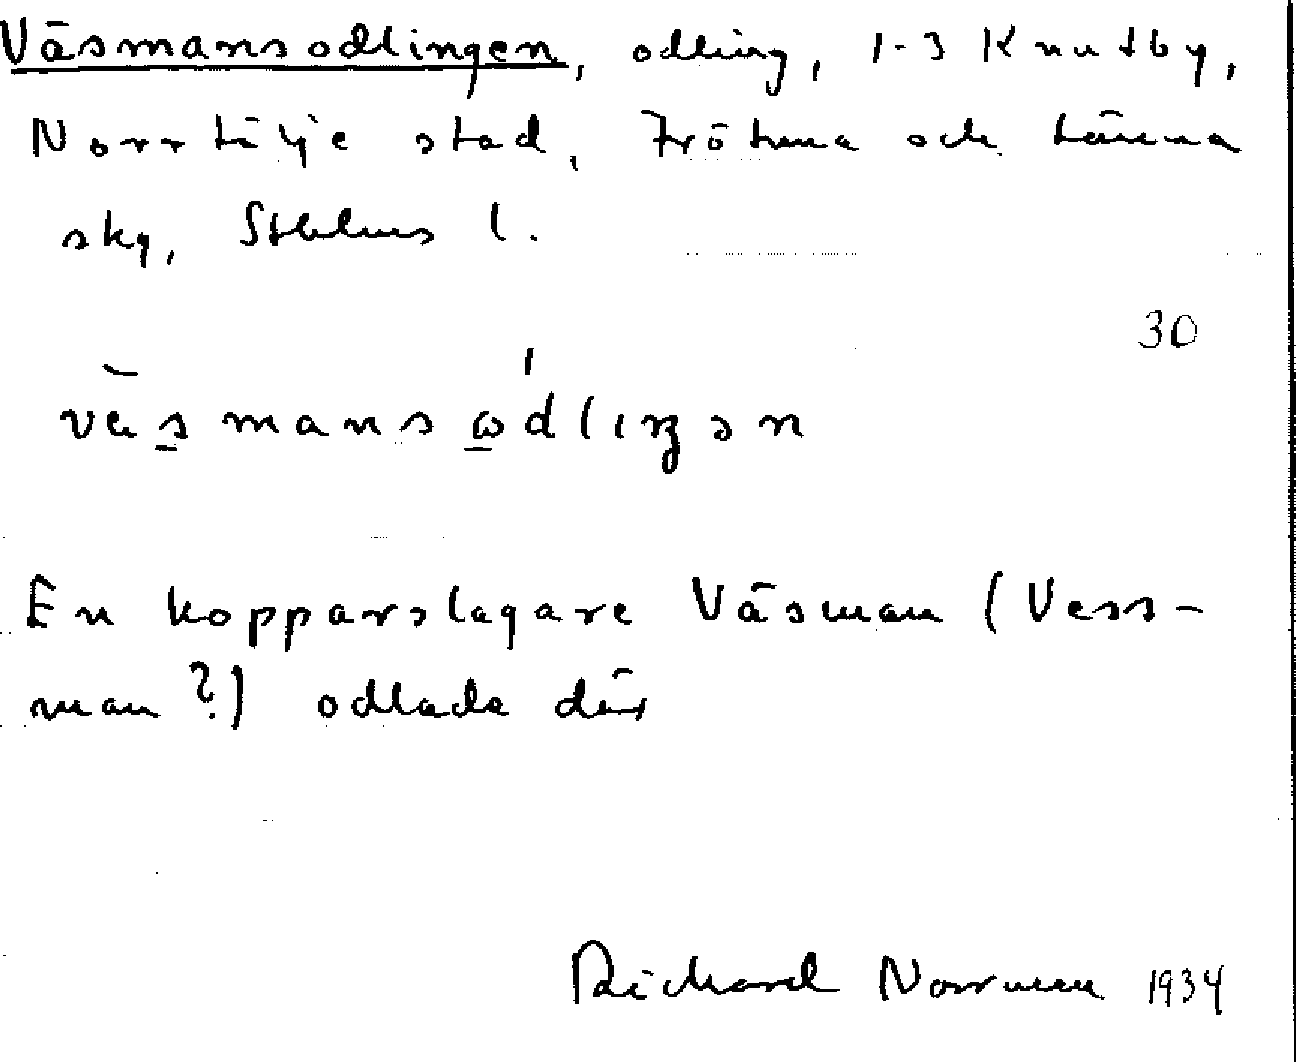 Väsmansodlingen, odling, 1-3 Knutby,
Norrtälje stad, Frötuna och Länna
skg, Sthlms l.
30
väsmansωdlıŋən
En kopparslagare Väsman (Vess-
man?) odlade där
Richard Norrman 1934